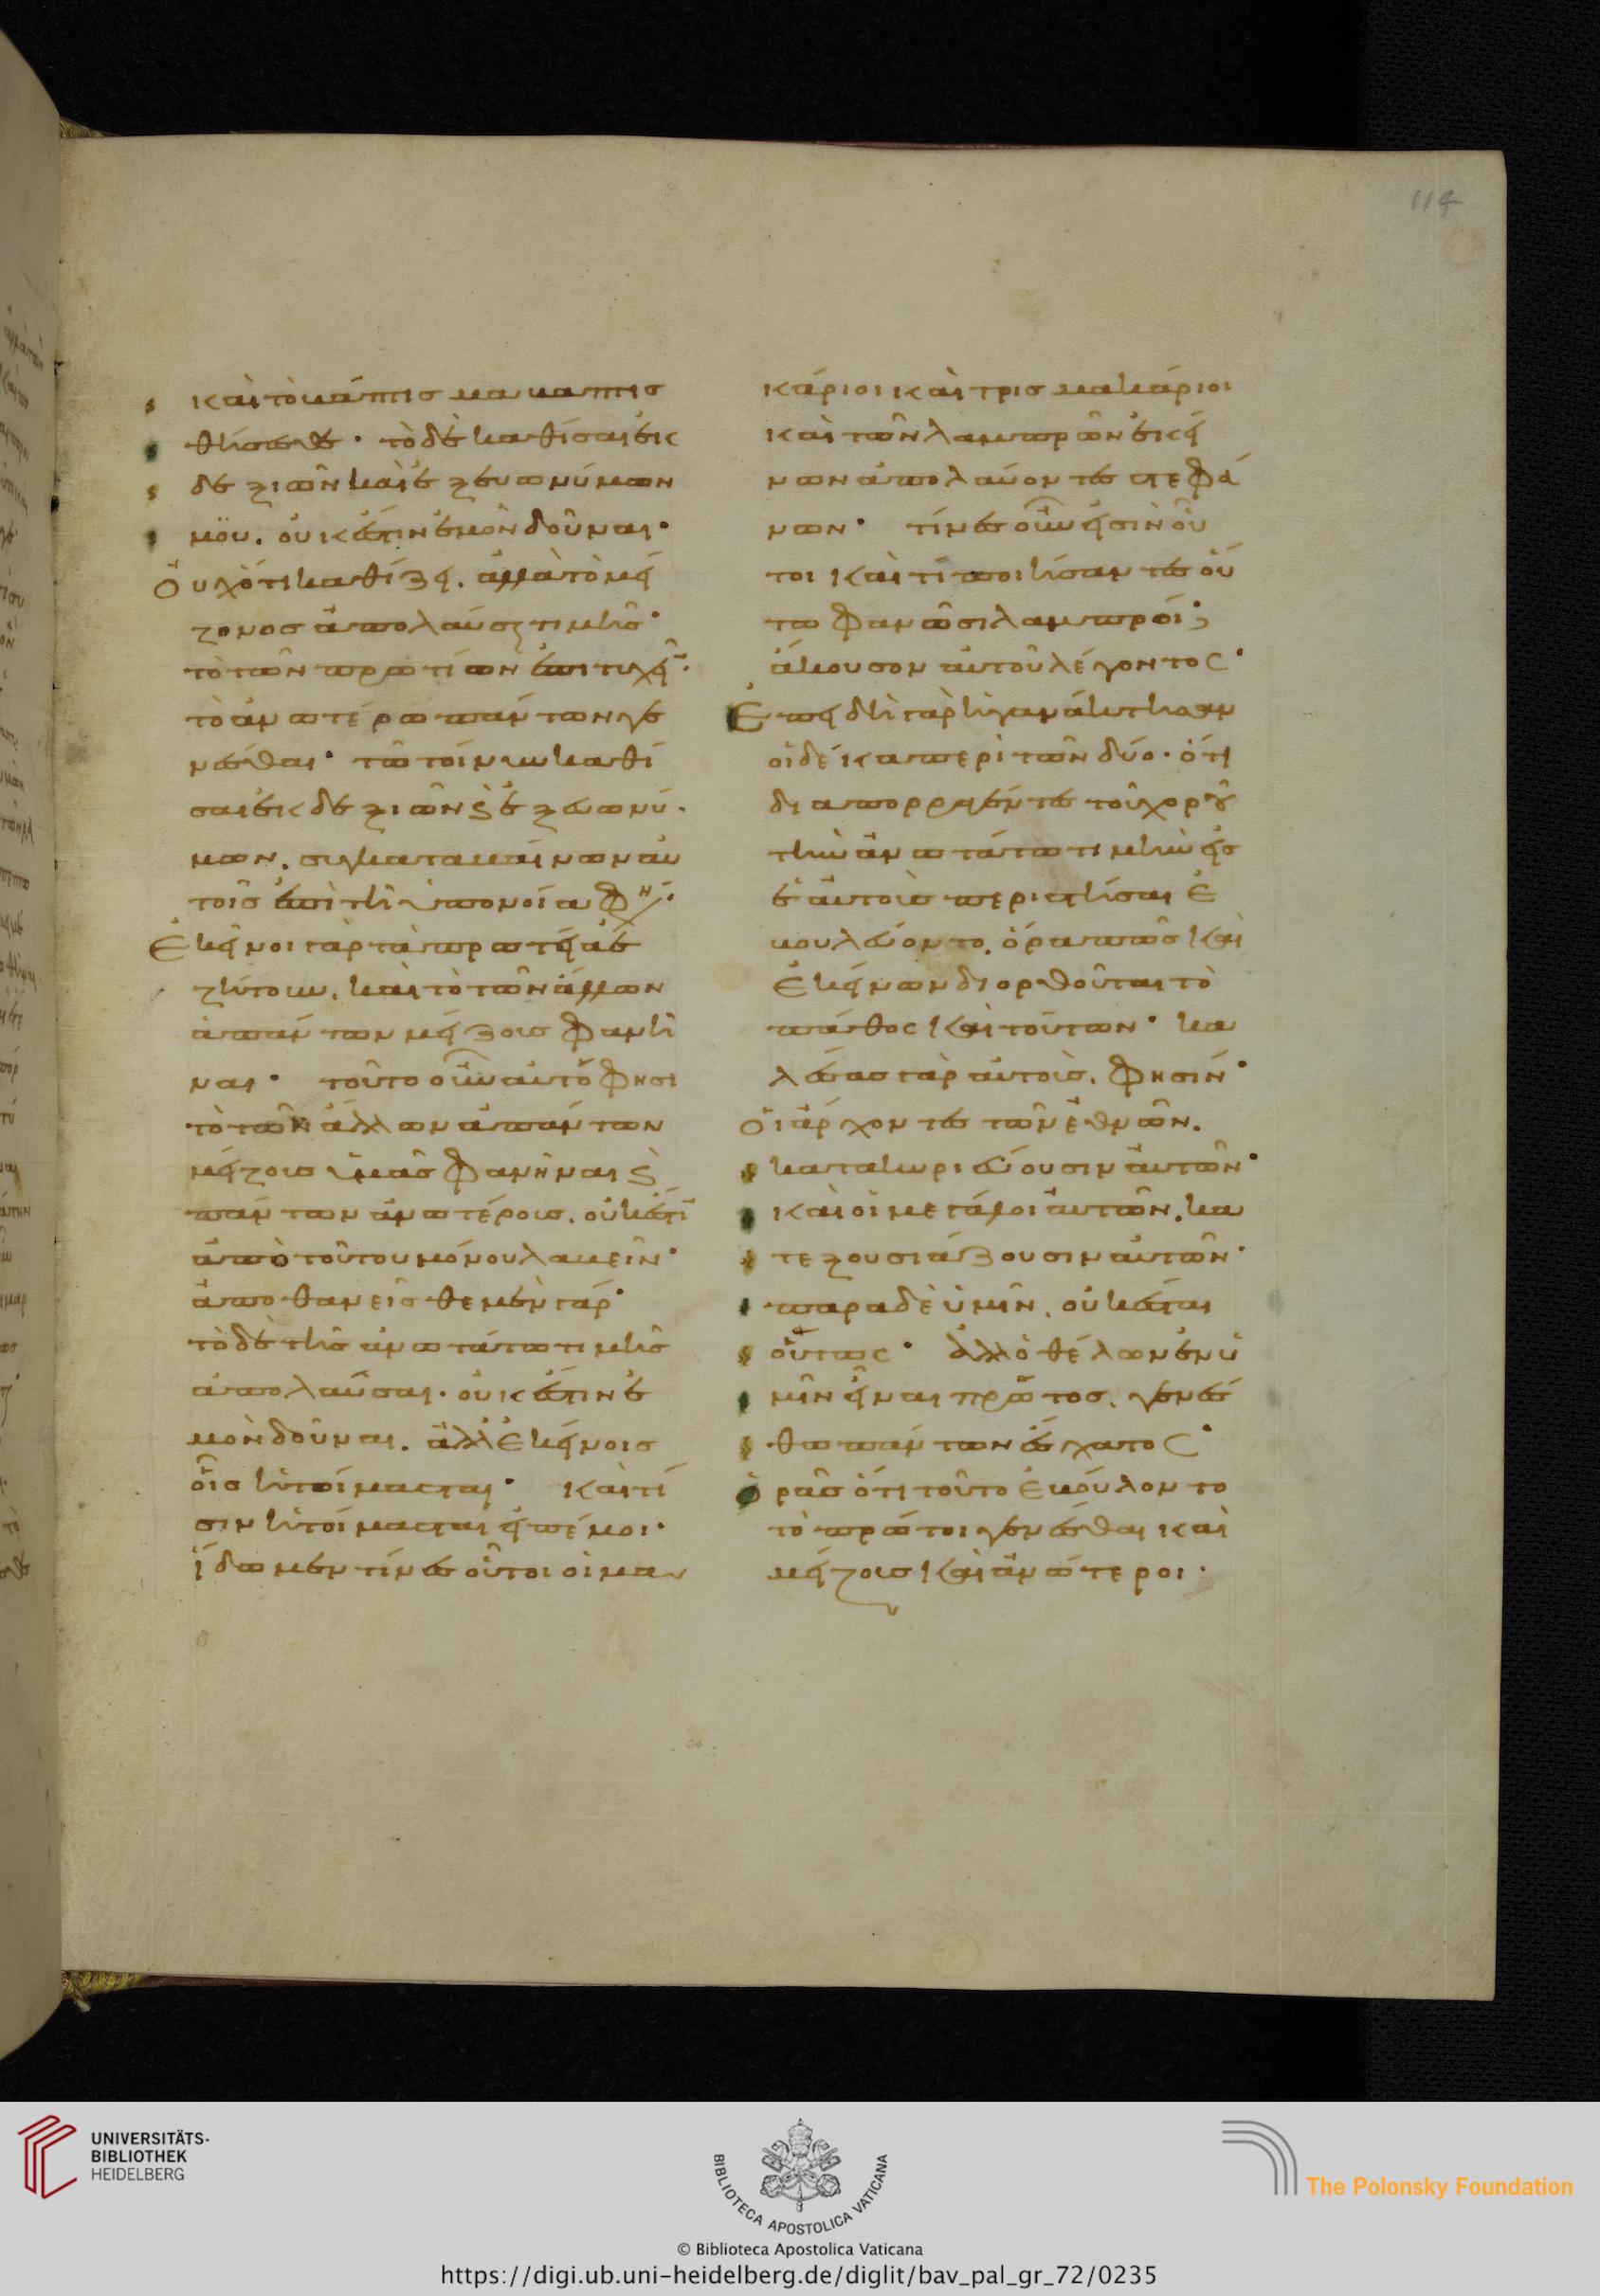 114
καὶ τὸ βάπτισμα βαπτισ
θήσεσθε· τὸ δὲ καθίσαι ἐκ
δεξιῶν καὶ ἐξ εὐωνύμων
μου, οὐκ ἔστιν ἐμὸν δοῦναι·
Οὐχ ὅτι καθίζει. ἀλλὰ τὸ μεί
ζονος ἀπολαῦσαι τιμῆς·
τὸ τῶν πρωτίων ἐπιτυχεῖν·
τὸ ἀνωτέρω πάντων γε
νέσθαι· τῶ τοίνυν καθί
σαι ἐκ δεξιῶν καὶ ἐξ εὐωνύ
μων. συγκαταβαίνων αὐ
τοῖς ἐπὶ τῆ ὑπονοία φησί·
Ἐκεῖνοι γὰρ τὰ πρωτεῖα ἐ
ζήτουν, καὶ τὸ τῶν ἄλλων
ἁπάντων μείζους φανῆ
ναι· τοῦτο οὖν αὐτό φησι
τὸ τῶν ἄλλων ἁπάντων
μείζους ὑμᾶς φανῆναι καὶ
πάντων ἀνωτέρους. οὐκ ἔστιν
ἀπὸ τούτου μόνου λαβεῖν·
ἀποθανεῖσθε μὲν γάρ·
τὸ δὲ τῆς ἀνωτάτω τιμῆς
ἀπολαῦσαι. οὐκ ἔστιν ἐ
μὸν δοῦναι. ἀλλ' ἐκείνοις
οἷς ἡτοίμασται· καὶ τί
σιν ἡτοίμασται εἰπέ μοι·
ἴδωμεν τίνες οὗτοι οἱ μα
κάριοι καὶ τρισμακάριοι
καὶ τῶν λαμπρῶν ἐκεί
νων ἀπολαύοντες στεφά
νων· τίνες οὖν εἰσὶν οὗ
τοι καὶ τί ποιήσαντες οὕ
τω φανῶσι λαμπροί;
ἄκουσον αὐτοῦ λέγοντος·
Ἐπειδὴ γὰρ ἠγανάκτησαν
οἱ δέκα περὶ τῶν δύο· ὅτι
διαπορραγέντες τοῦ χοροῦ
τὴν ἀνωτάτω τιμὴν εἰς
ἑαυτοὺς περιστῆσαι ἐ
βουλεύοντο. ὅρα πῶς καὶ
ἐκείνων διορθοῦται τὸ
πάθος καὶ τούτων· κα
λέσας γὰρ αὐτοὺς, φησίν·
Οἱ ἄρχοντες τῶν ἐθνῶν.
κατακυριεύουσιν αὐτῶν·
καὶ οἱ μεγάλοι αὐτῶν, κα
τεξουσιάζουσιν αὐτῶν·
παρὰ δὲ ὑμῖν, οὐκ ἔσται
οὕτως· ἀλλ' ὁ θέλων ἐν ὑ
μῖν εἶναι πρῶτος, γενέσ
θω πάντων ἔσχατος·
Ὁρᾶς ὅτι τοῦτο ἐβούλοντο
τὸ πρῶτοι γενέσθαι καὶ
μείζους καὶ ἀνώτεροι·
UNIVERSITÄTS-
BIBLIOTHEK
HEIDELBERG
BIBLIOTECA APOSTOLICA VATICANA
The Polonsky Foundation
© Biblioteca Apostolica Vaticana
https://digi.ub.uni-heidelberg.de/diglit/bav_pal_gr_72/0235